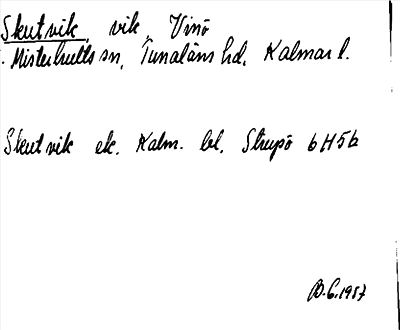 Skutvik, vik, Vinö
Misterhults sn, Tunaläns hd, Kalmar l.
Skutvik ek. Kalm. bl. Strupö 6H5b
6.1987